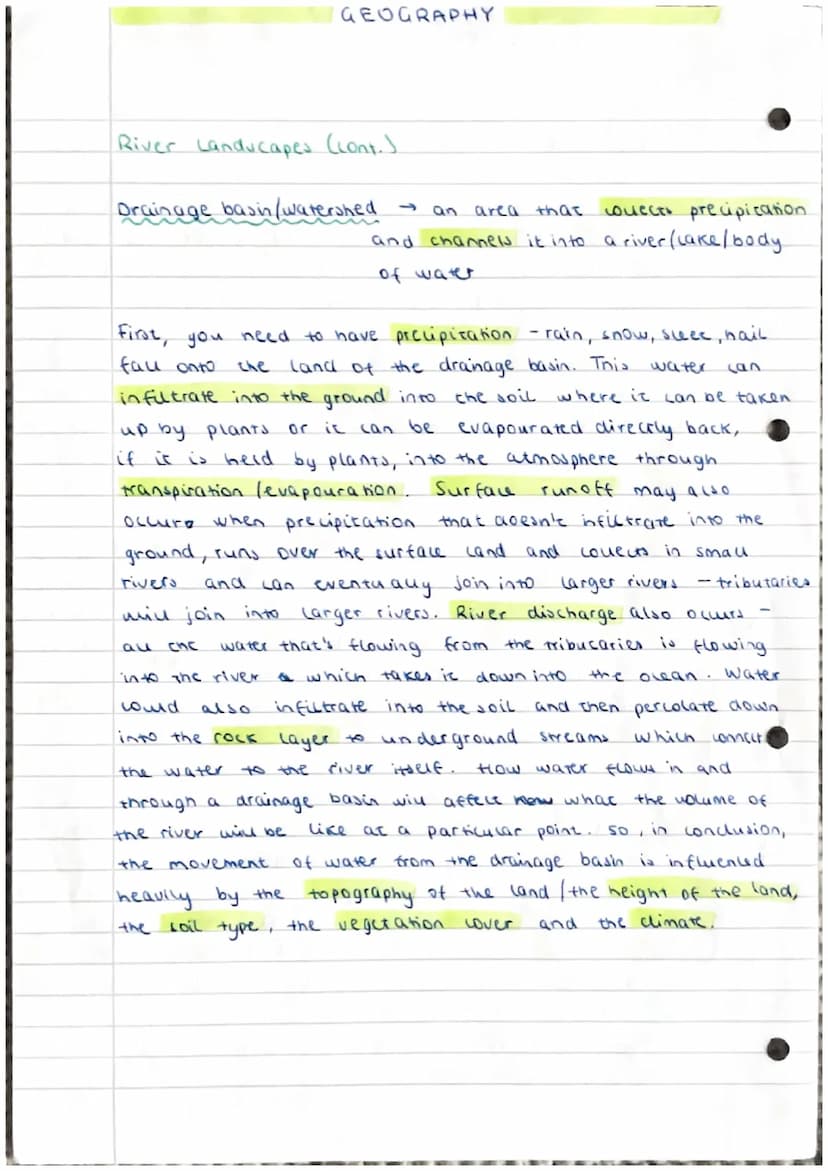 GEOGRAPHY
River Landscapes (cont.)
Drainage basin/watershed → an area that collects precipitation
and channels it into a river/lake/body
of water
First, you need to have precipitation - rain, snow, sleet, hail
fall onto the land of the drainage basin. This water can
infiltrate into the ground into the soil where it can be taken
up by plants or it can be evapourated directly back,
if it is held by plants, into the atmosphere through
transpiration/evapouration. Surface runoff may also
occur when precipitation that doesn't infiltrate into the
ground, runs over the surface land and collects in small
rivers and can eventually join into larger rivers - tributaries
will join into larger rivers. River discharge also occurs -
all the water that's flowing from the tributaries is flowing
into the river which takes it down into the ocean. Water
could also infiltrate into the soil and then percolate down
into the rock layer to underground streams which connect
the water to the river itself. How water flows in and
through a drainage basin will affect what the volume of
the river will be like at a particular point. So, in conclusion,
the movement of water from the drainage basin is influenced
heavily by the topography of the land/the height of the land,
the soil type, the vegetation cover and the climate.